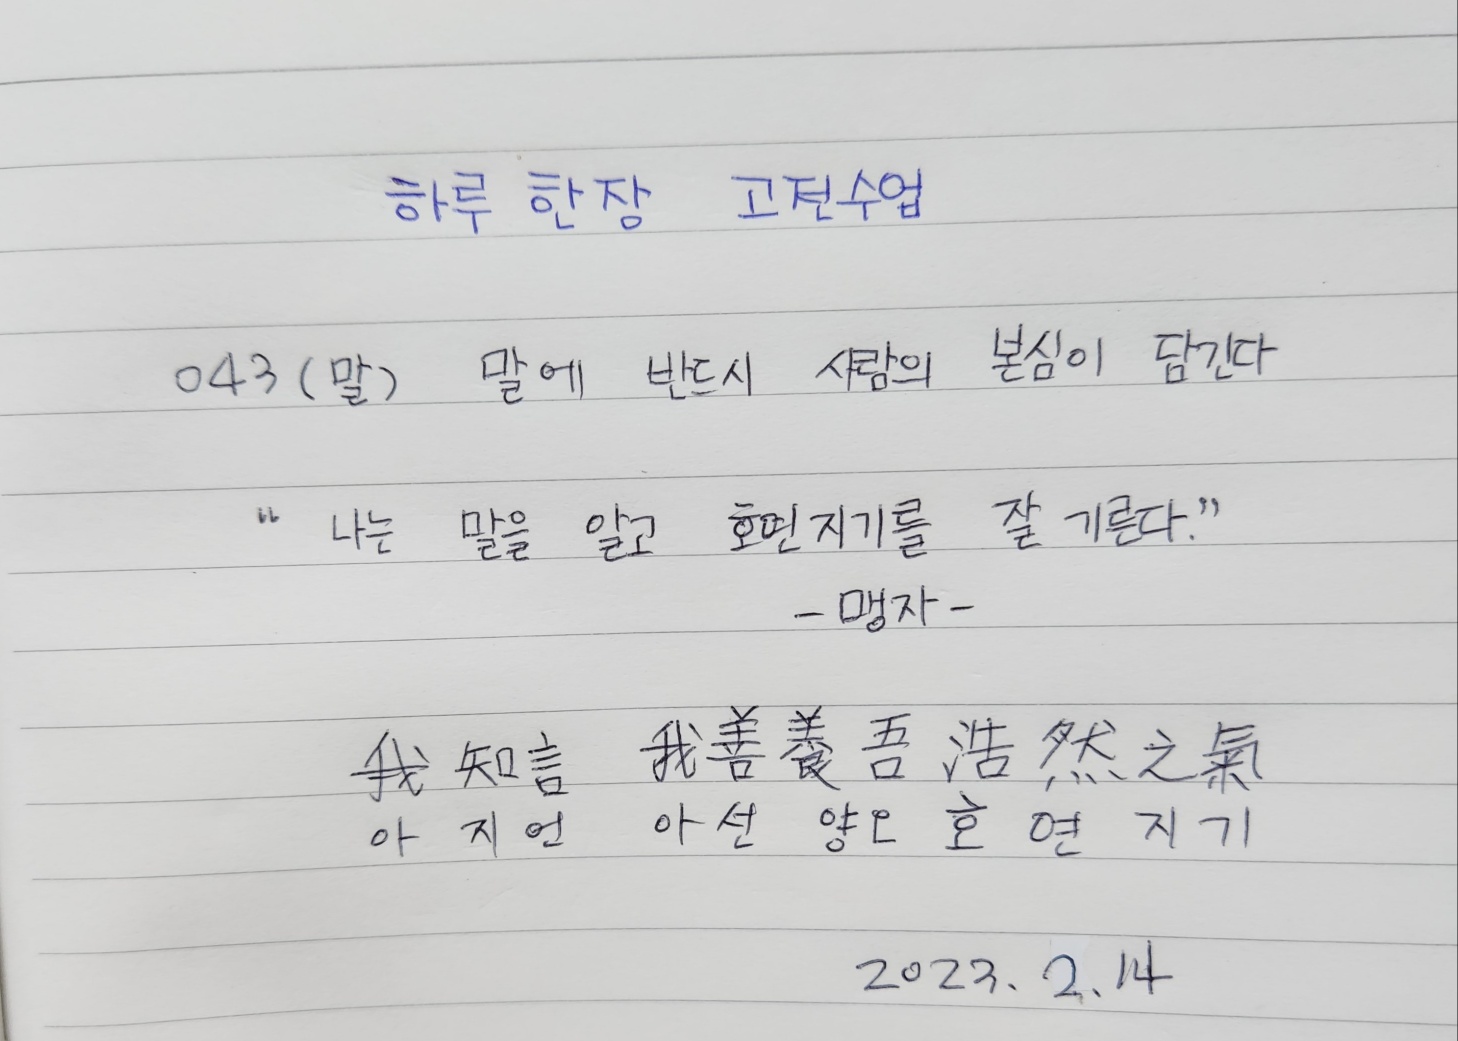 하루 한장 고전수업
043 (말) 말에 반드시 사람의 본심이 담긴다
“ 나는 말을 알고 호연지기를 잘 기른다.”
- 맹자 -
我 知言 我善養吾浩然之氣
아 지언 아선 양오 호연지기
2023. 2. 14